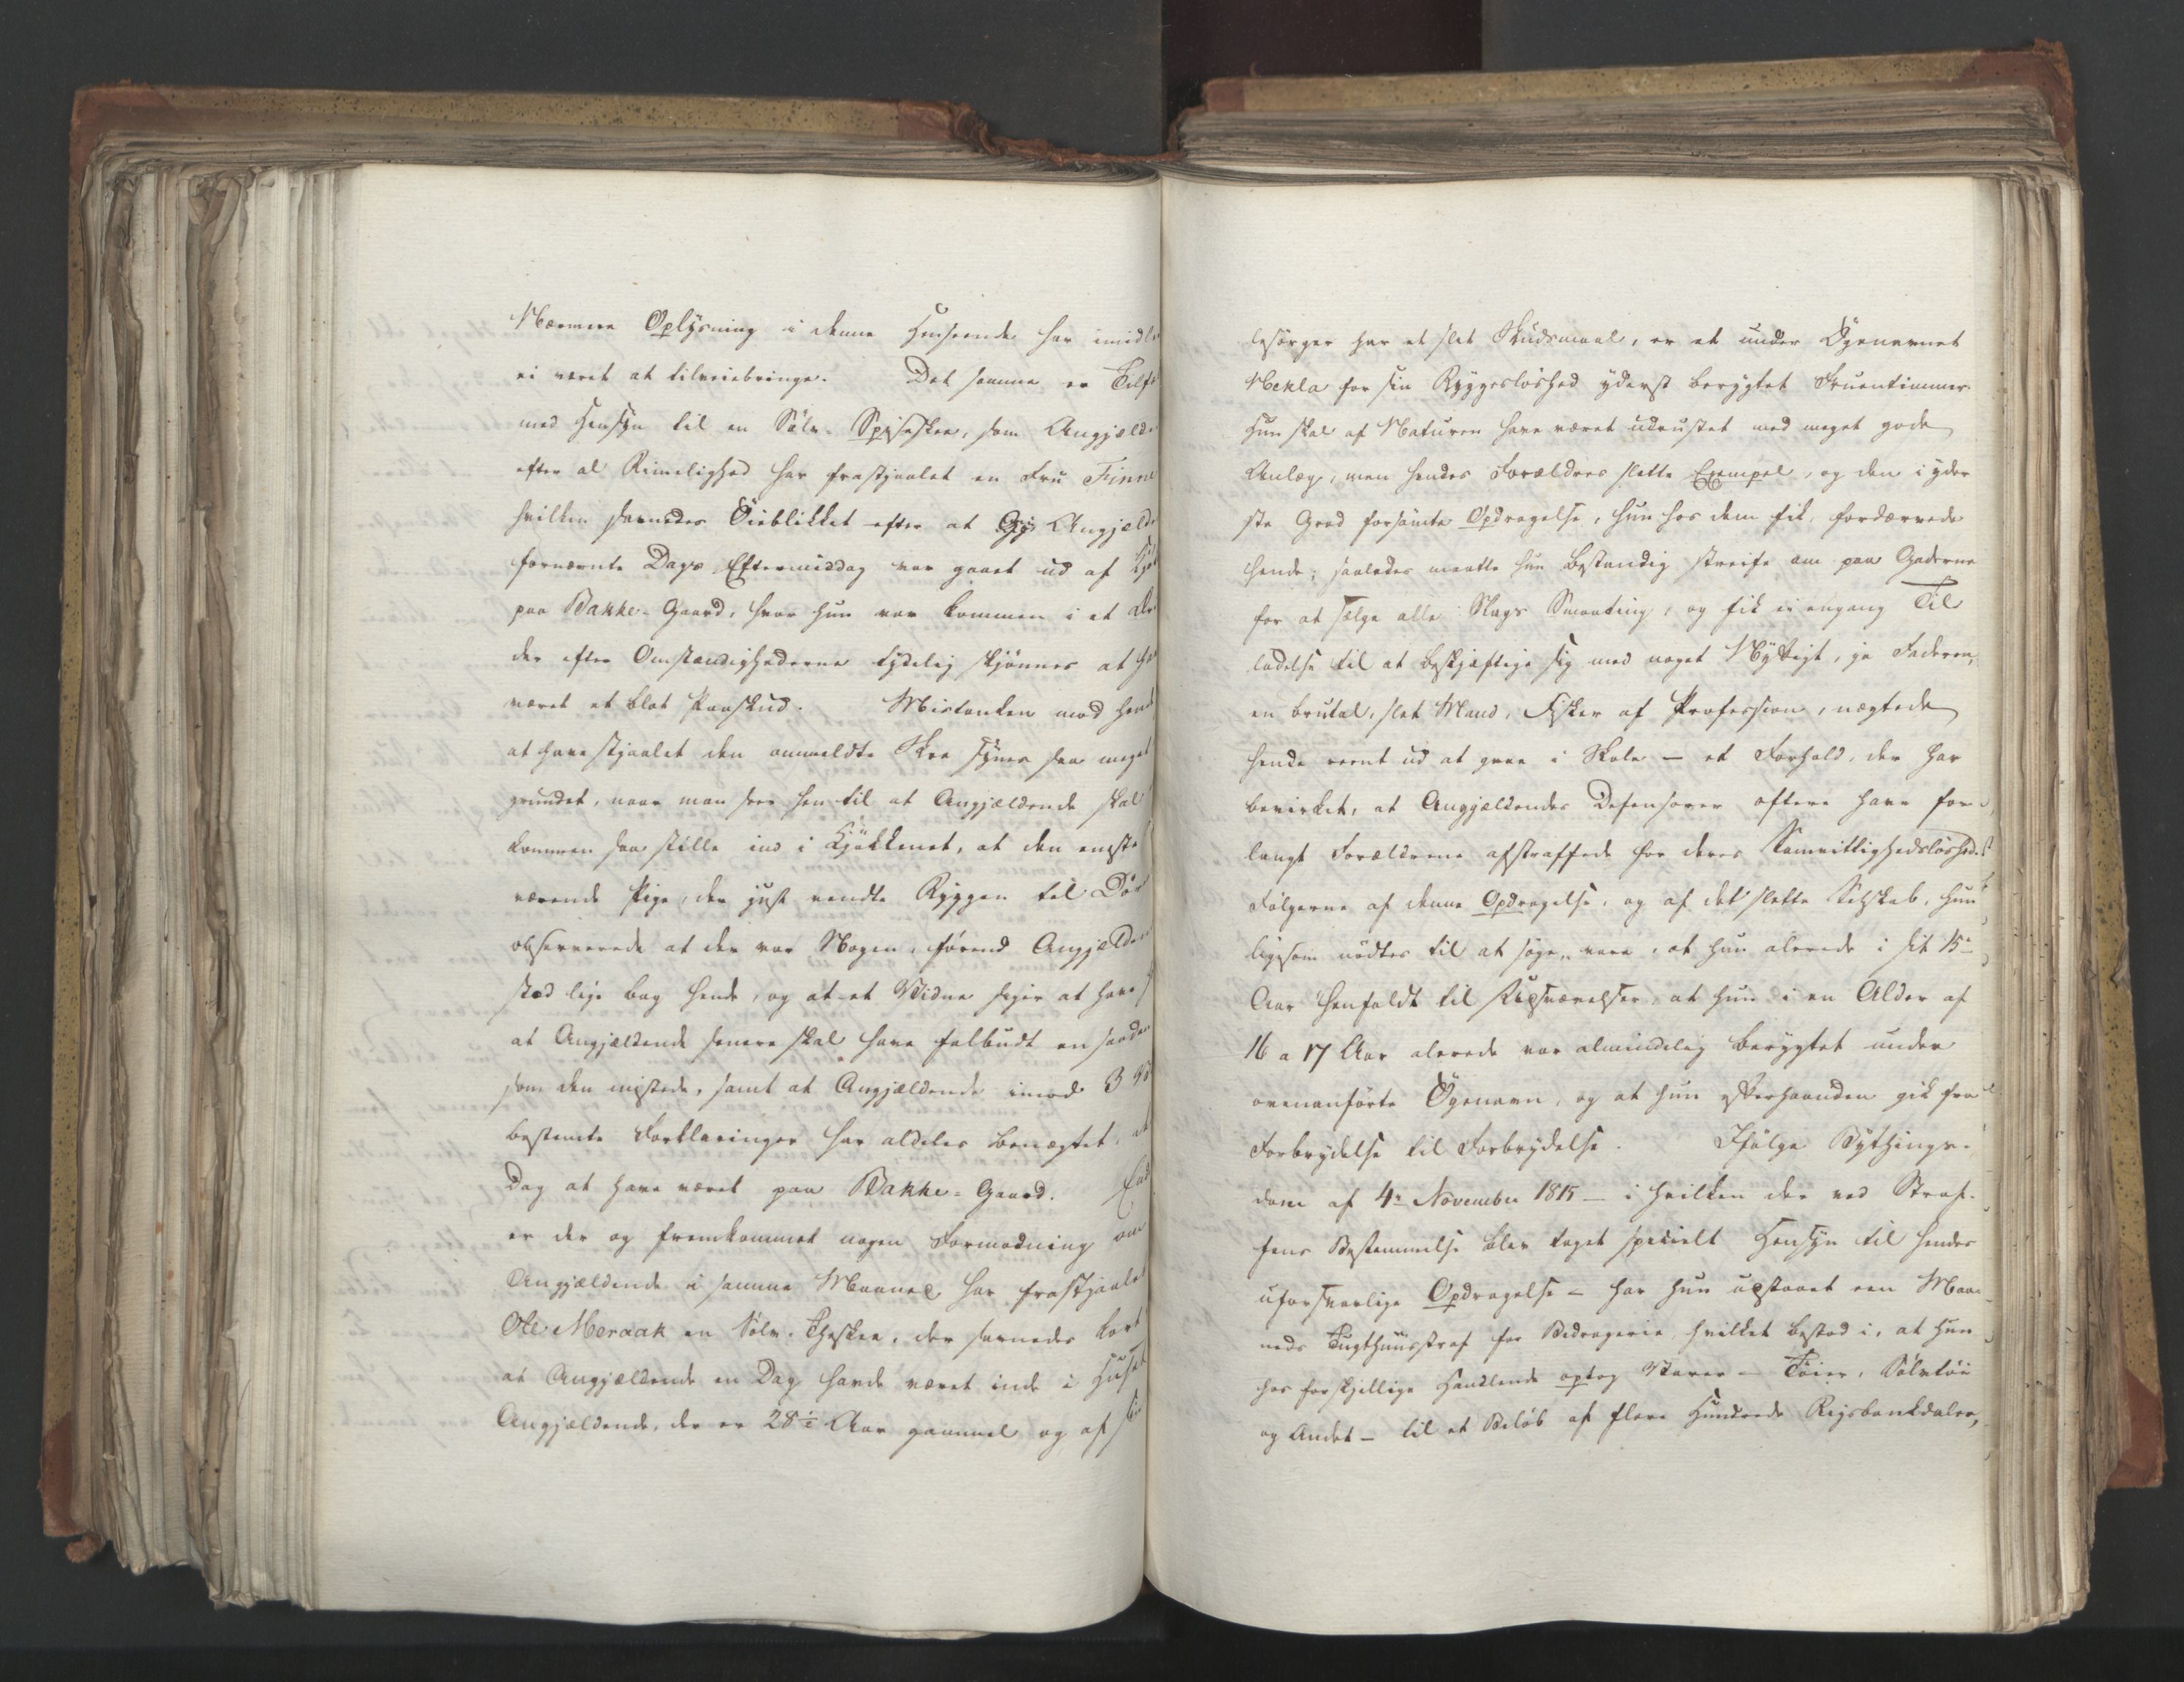 Nærmere Oplysning i denne Henseende har imidl
ei været at tilveiebringe. Det samme er Tilf
med Hensyn til en Sølv-Spiseskee, som Angjeld
efter al Rimelighed har frastjaalet en Fru Finne
hvilken savnedes Öieblikket efter at Angjeld
fornævnte Dags Eftermiddag var gaaet ud af Kjøk
paa Bakke-Gaard, hvor hun var kommen i et
der efter Omstændighederne tydelig skjønnes at ha
været et blot Paaskud. Mistanken mod hende
at have stjaalet den ommeldte Skee synes saa meget
grundet, naar man seer hen til at Angjældende skal
kommen saa stille ind i Kjøkkenet, at den eneste
værende Pige, der just vendte Ryggen til Dør
observerede at der var Nogen, førend Angjælden
stod lige bag hende, og at et Vidne siger at have
at Angjældende senere skal have falbudt en saadan
som den mistede, samt at Angjældende imod 3
bestemte Forklaringer har aldeles benægtet, at
Dag at have været paa Bakke-Gaard. End
er der og fremkommet nogen Formodning om
Angjældende i samme Maaned har frastjaalet
Ole Meraak en Sølv-Theskee, der savnedes kort
at Angjældende en Dag havde været inde i Huset
Angjældende, der er 28½ Aar gammel og af sin
lesørger har et slet Skudsmaal, er et under Øgenavnet
Mekla for sin Ryggesløshed yderst berygtet Fruentimmer.
Hun skal af Naturen have været udrustet med meget gode
Anlæg, men hendes Forældres slette Exempel, og den i yder
ste Grad forsømte Opdragelse, hun hos dem fik, fordærvede
hende; saaledes maatte hun bestandig streife om paa Gaderne
for at sælge alle Slags Smaating, og fik ei engang Til
ladelse til at beskjæftige sig med noget Nyttigt, ja Faderen,
en brutal, slet Mand, Fisker af Profession, nægtede
hende reent ud at gaae i Skole — et Forhold, der har
bevirket, at Angjældendes Defensorer oftere have for-
langt Forældrene afstraffede for deres Samvittighedsløshed.
Følgerne af denne Opdragelse, og af det slette Selskab, hun
ligesom nødtes til at søge, vare, at hun alerede i sit 15de
Aar henfaldt til Udsvævelser, at hun i en Alder af
16 a 17 Aar alerede var almindelig berygtet under
ovenanførte Øgenavn, og at hun efterhaanden gik fra
Forbrydelse til Forbrydelse. Ifølge Bythings-
dom af 4de November 1815 — i hvilken der ved Straf-
fens Bestemmelse blev taget specielt Hensyn til hendes
uforsvarlige Opdragelse — har hun udstaaet een Maa-
neds Tugthuusstraf for Bedragerie, hvilket bestod i, at hun
hos forskjellige Handlende optog Varer — Tøier, Sølvtøi
og Andet — til et Beløb af flere Hundrede Rigsbankdaler,